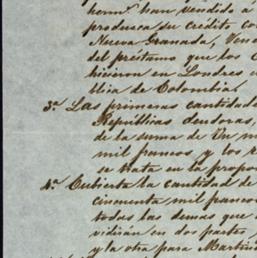 herm.ˢ han vendido á
produzca su crédito co
Nueva Granada, Vene
del préstamo que los C
hicieron en Londres e
blica de Colombia.
3.ª Las primeras cantidade
Repúblicas deudoras,
de la suma de Un m
mil francos y los r
se trata en la propo
4.ª Cubierta la cantidad de
cincuenta mil francos
todas las demas que
vidirán en dos partes
y la otra para Martin